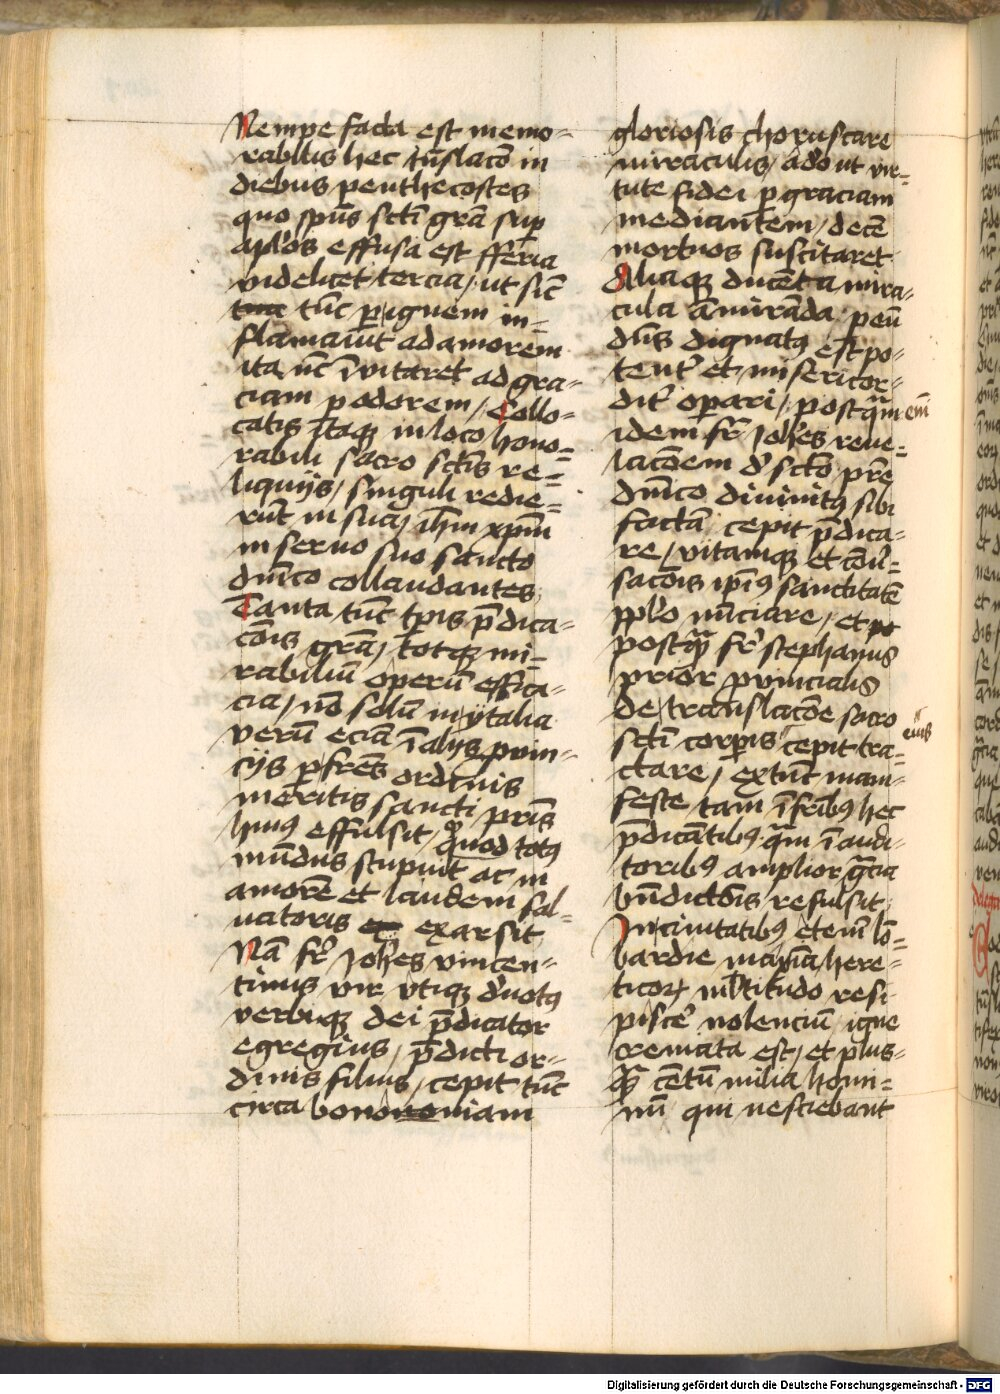 Nempe facta est memo=
rabilis hec tn̄slacō in
diebus penthecostes
quo spūs sctī grā sup̱
apl'os effusa est fferia
videlicet tercia / ut sic̄
tūc per ignem in=
flāmaūt ad amorem
ita nc̄ īvitaret ad gra=
ciam per odorem / Collo=
catis itaq; in loco hono=
rabili sacro sctīs re=
liquijs / singuli redie=
rūt in sua / ih̄m xp̄m
in seruo suo sancto
dn̄ico collaudantes
Tanta tūc tp̄is p̄dica=
cōis grā / totq; mi=
rabiliū operū effica=
cia / nō solū in ytalia
verū eciā ī alijs prouin=
cijs per frēs ordinis
meritis sancti pr̄is
huiꝰ effulsit / quod totꝰ
mūdus stupuit ac in
amorē et laudem sal=
uatoris exarsit
Nā fr̄ Joh̄es vincen=
tinus vir vtiq; d'uotꝰ
verbiq; dei p̄dicator
egregius / p̄dicti or=
dinis filius / cepit tūc
circa bononiam
gloriosis choruscare
miraculis / adō ut vir=
tute fidei per graciam
mediantem / decē
mortuos suscitaret
Aliaq; ducēta mira=
cula āmirāda per eū
dn̄s dignatꝰ est po=
tent' et misericor=
dit' operari / postquam em̄
idem fr̄ Joh̄es reue=
lacōem d' sctō pr̄e
dn̄ico diuinitꝰ sibi
factā cepit p̄dica=
re / vitamq; et cōu'=
sacōis ip̄iꝰ sanctitatē
ppl'o nūciare / et
postq̄ fr̄ stephanus
prior prouincialis
de translacōe sacro
sctī corporis eius cepit tra=
ctare / extūc mani=
feste tam ī frībꝰ hec
p̄dicātibꝰ quam ī audi=
toribꝰ amplior grā̄cia
bn̄dictōis refulsit
In ciuitatibꝰ etem̄ lō=
bardie maxīa here=
ticoꝝ ml'titudo resi
piscer' nolenciū igne
cremata est / et plus=
q̄ centū milia homi=
nū qui nesciebant